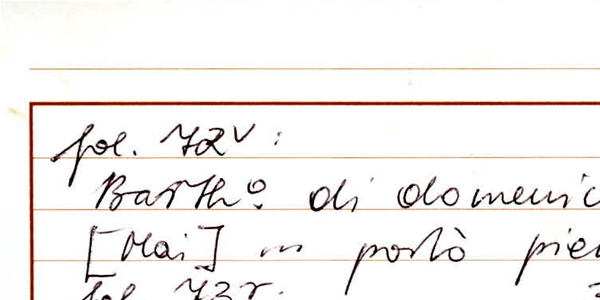 fol. 72v:
Barth⁰. di domenic
[Mai] in portò pie
fol. 73r.